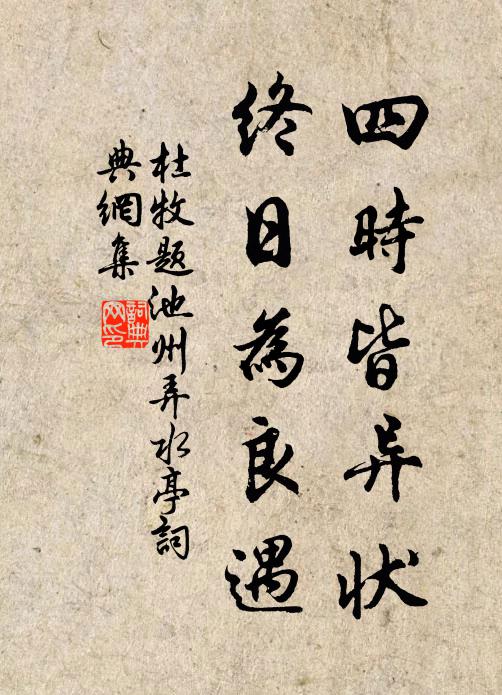 四時皆异状
終日為良遇
杜牧題池州弄水亭詞
典網集
詞典
网印